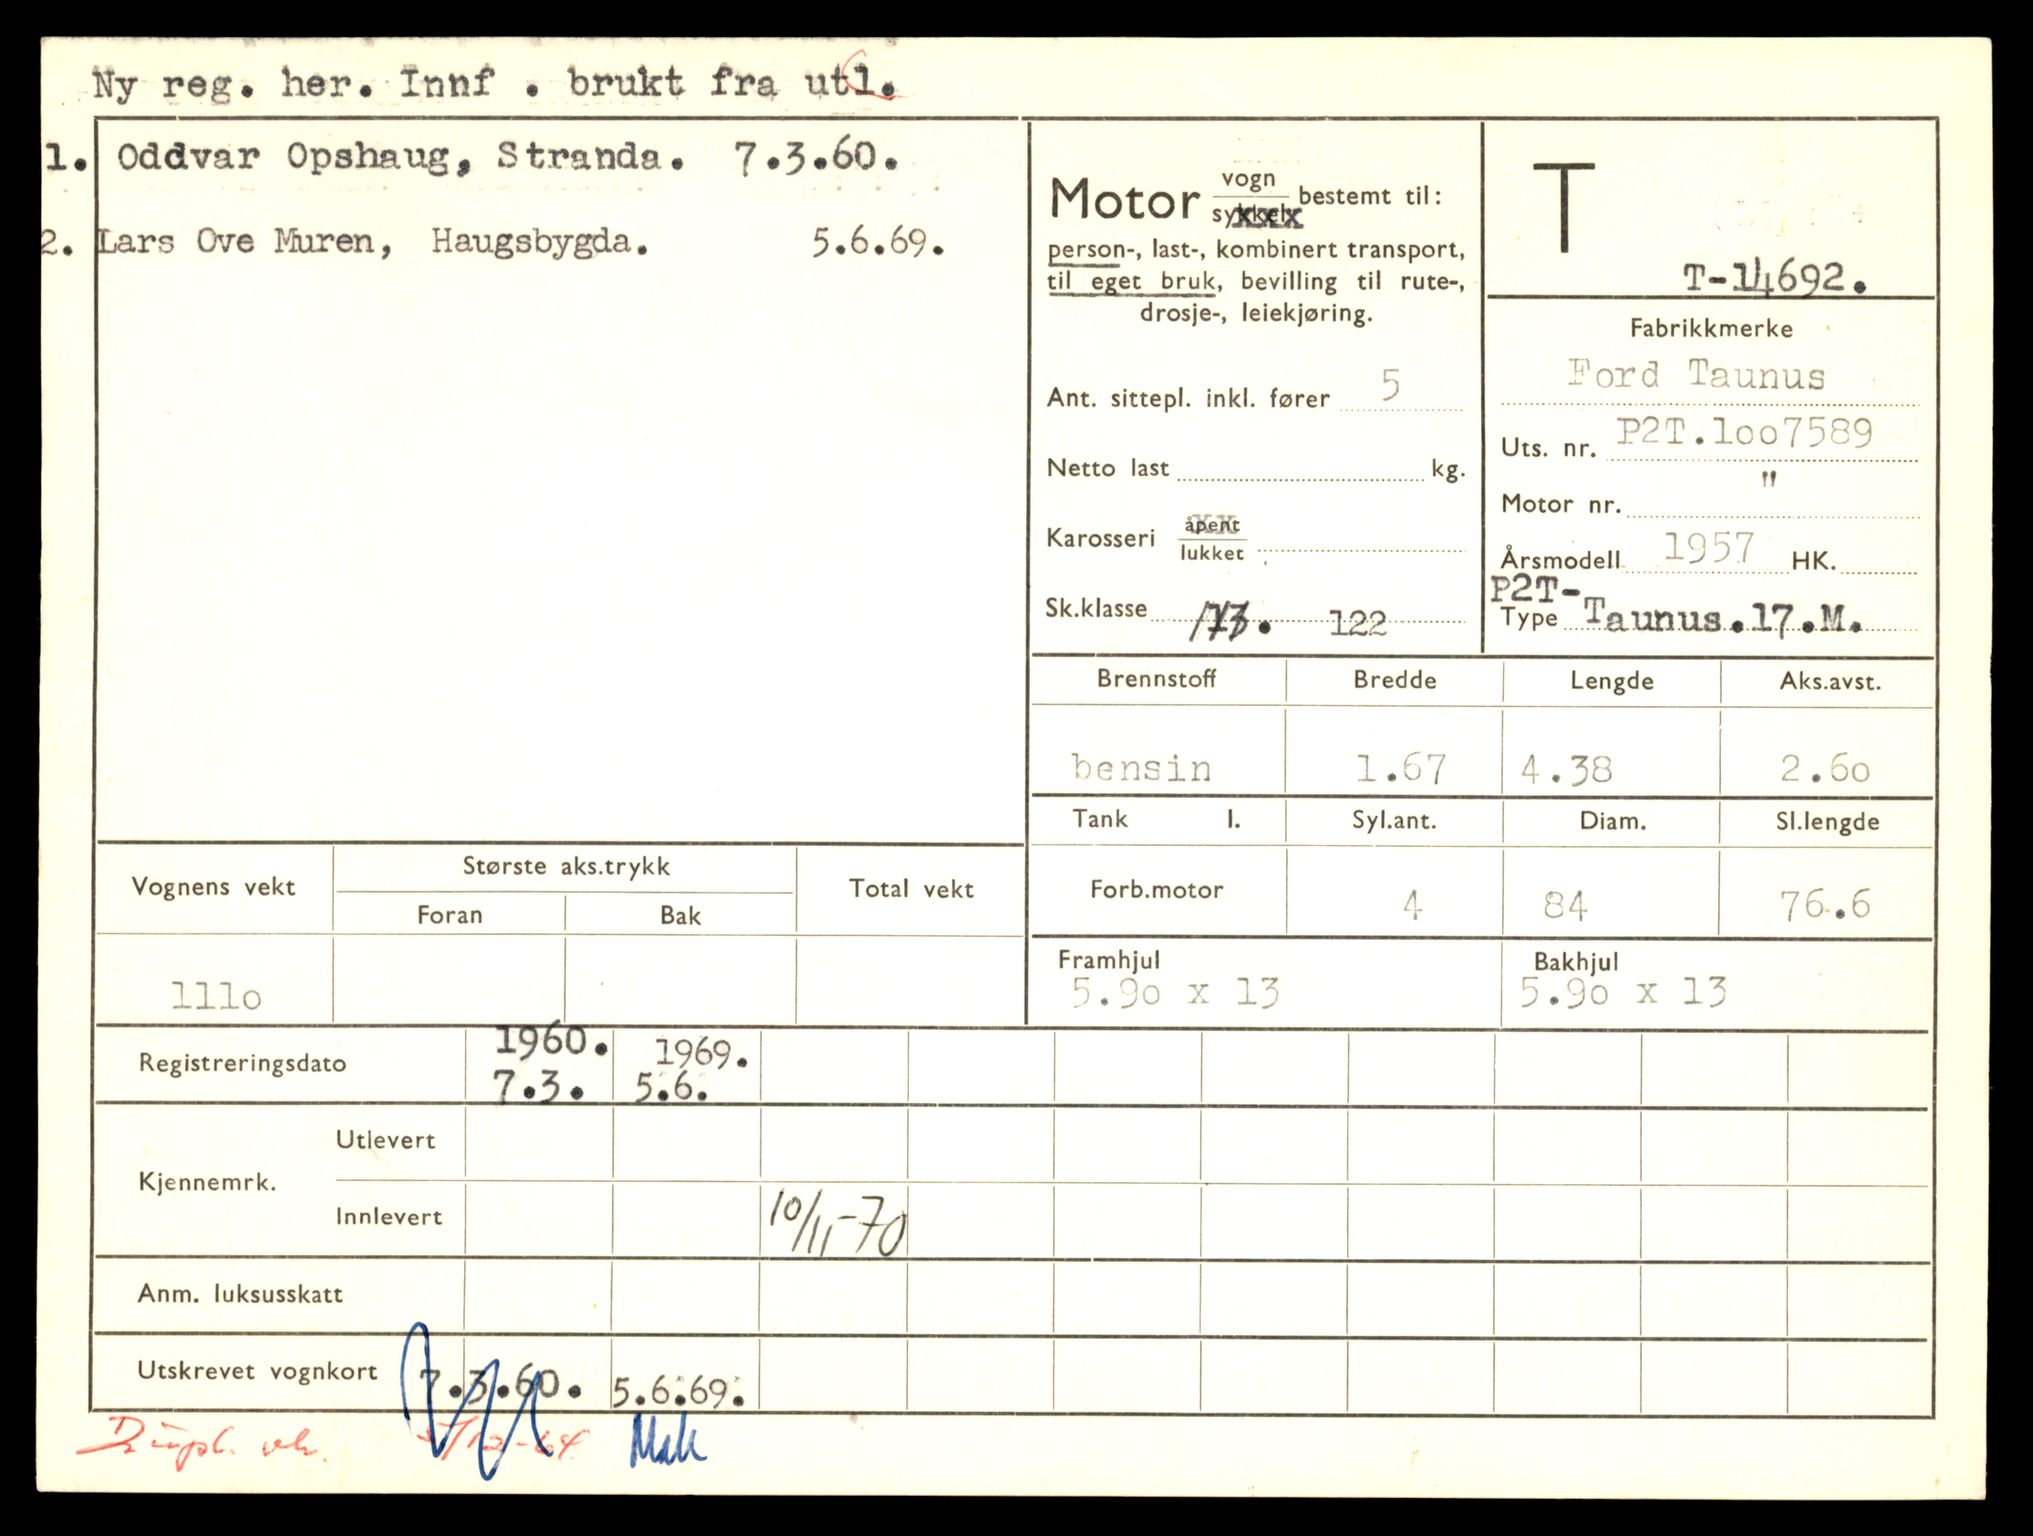 Ny reg. her. Innf . brukt fra utl.
1. Oddvar Opshaug, Stranda. 7.3.60.
2. Lars Ove Muren, Haugsbygda. 5.6.69.
Motor vogn bestemt til:
sykkel
person-, last-, kombinert transport,
til eget bruk, bevilling til rute-,
drosje-, leiekjøring.
Ant. sittepl. inkl. fører 5
Netto last kg.
Karosseri åpent
lukket
Sk.klasse 122
T
T-14692.
Fabrikkmerke
Ford Taunus
Uts. nr. P2T.loo7589
Motor nr. "
Årsmodell 1957 HK.
P2T-
Type Taunus.17.M.
Brennstoff Bredde Lengde Aks.avst.
bensin 1.67 4.38 2.6o
Tank l. Syl.ant. Diam. Sl.lengde
Forb.motor 4 84 76.6
Framhjul Bakhjul
5.9o x 13 5.9o x 13
Vognens vekt Største aks.trykk Total vekt
Foran Bak
lllo
Registreringsdato 1960. 1969.
7.3. 5.6.
Kjennemrk. Utlevert
Innlevert 10/11-70
Anm. luksusskatt
Utskrevet vognkort 7.3.60. 5.6.69.
Dupl. vk. /12-64